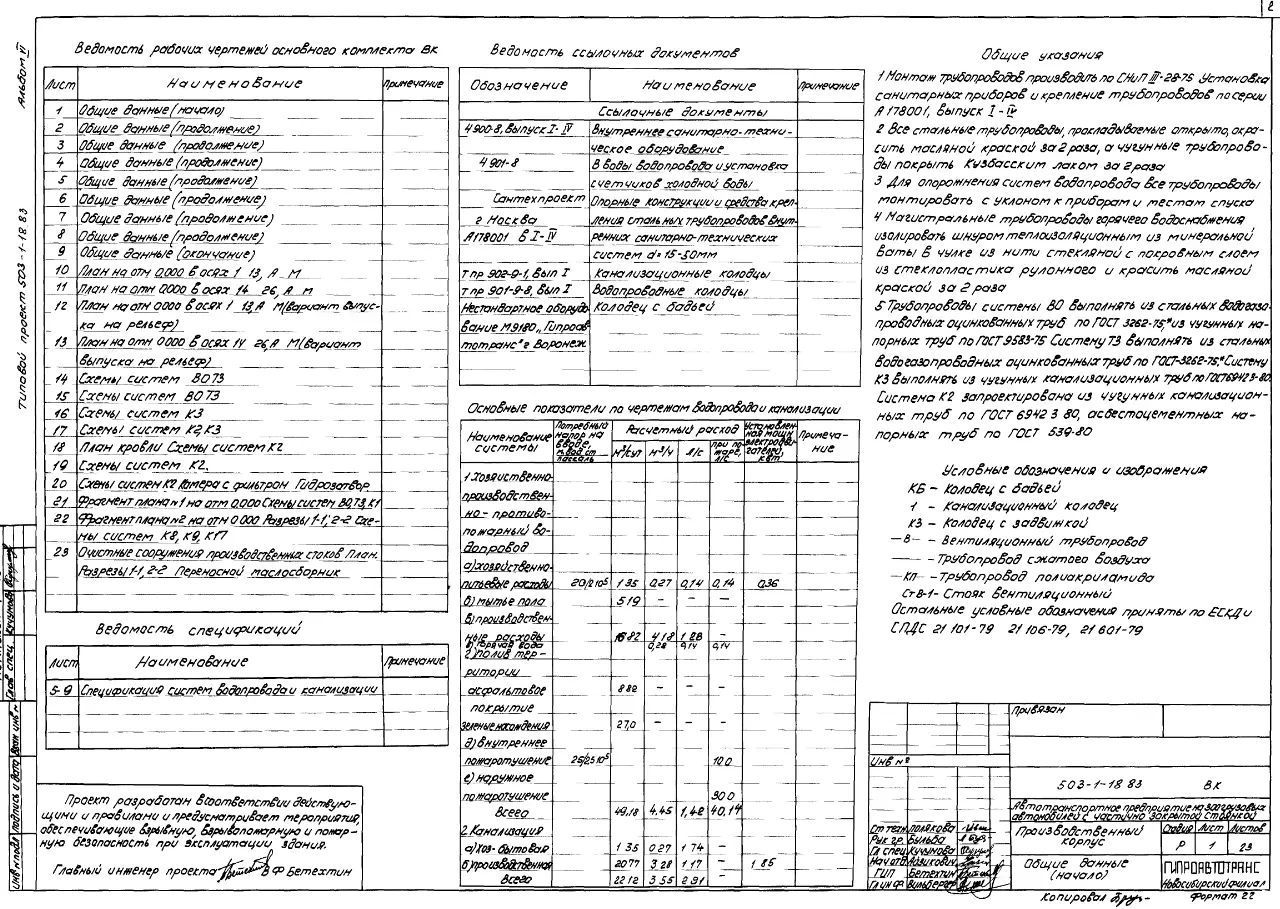 2
Альбом VI
Типовой проект 503-1-18 83
Ведомость рабочих чертежей основного комплекта ВК
Лист Наименование Примечание
1 Общие данные (начало)
2 Общие данные (продолжение)
3 Общие данные (продолжение)
4 Общие данные (продолжение)
5 Общие данные (продолжение)
6 Общие данные (продолжение)
7 Общие данные (продолжение)
8 Общие данные (продолжение)
9 Общие данные (окончание)
10 План на отм 0,000 в осях 1 13, А М
11 План на отм 0,000 в осях 14 26, А М
12 План на отм 0000 в осях 1 13, А М (Вариант выпус-
ка на рельеф)
13 План на отм 0000 в осях 14 26, А М (Вариант
выпуска на рельеф)
14 Схемы систем ВО ТЗ
15 Схемы систем ВО ТЗ
16 Схемы систем К3
17 Схемы систем К2, К3
18 План кровли Схемы систем К2
19 Схемы систем К2.
20 Схемы систем К2 Камера с фильтром Гидрозатвор
21 Фрагмент плана №1 на отм 0.000 Схемы систем ВО, ТЗ, К1
22 Фрагмент плана №2 на отм 0 000 Разрезы 1-1, 2-2 Схе-
мы систем К8, К9, К17
23 Очистные сооружения производственных стоков План.
Разрезы 1-1, 2-2 Переносной маслосборник
Ведомость спецификаций
Лист Наименование Примечание
5-9 Спецификация систем водопровода и канализации
Проект разработан в соответствии действую-
щими и правилами и предусматривает мероприятия,
обеспечивающие взрывную, взрывопожарную и пожар-
ную безопасность при эксплуатации здания.
Главный инженер проекта В Ф Бетехтин
Ведомость ссылочных документов
Обозначение Наименование Примечание
Ссылочные документы
4 900-8, Выпуск I-IV Внутреннее санитарно-техни-
ческое оборудование
4 901-8 Вводы водопровода и установка
счетчиков холодной воды
Сантехпроект Опорные конструкции и средства креп-
г Москва ления стальных трубопроводов внут-
А178001 В I-IV ренних санитарно-технических
систем d=15-50мм
т пр 902-9-1, Вып I Канализационные колодцы
т пр 901-9-8, Вып I Водопроводные колодцы
Нестандартное оборудо Колодец с бадьей
вание М9180,, Гипроав
тотранс" г Воронеж
Основные показатели по чертежам водопровода и канализации
Наименование системы Потребный напор на вводе, м вод ст паскаль Расчетный расход м³/сут м³/ч л/с при по-жаре, л/с Установлен-ная мощн электродви-гателей, кВт Примеча-ние
1 Хозяйственно-
производствен-
но-противо-
пожарный во-
допровод
а) хозяйственно-
питьевые расходы 20/2 10⁵ 1 35 0,27 0,14 0,14 0,36
б) мытье пола 5 19 – –
в) производствен-
ные расходы 16 82 4 18 1 28 –
в) горячая вода 0,28 0,14 0,14
г) полив тер-
ритории
асфальтовое 8 82 – – –
покрытие
зеленые насаждения 27,0 – – –
д) внутреннее
пожаротушение 25/2,5 10⁵ 10 0
е) наружное
пожаротушение 30 0
Всего 49,18 4.45 1,42 40,14
2. Канализация
а) хоз-бытовая 1 35 0.27 1 74 –
б) производственная 20 77 3 28 1 17 – 1 85
Всего 22 12 3 55 2 91
Общие указания
1 Монтаж трубопроводов производить по СНиП III-28-75 Установка
санитарных приборов и крепление трубопроводов по серии
А 178001, Выпуск I-IV
2 Все стальные трубопроводы, прокладываемые открыто, окра-
сить масляной краской за 2 раза, а чугунные трубопрово-
ды покрыть Кузбасским лаком за 2 раза
3 Для опорожнения систем водопровода все трубопроводы
монтировать с уклоном к приборам и местам спуска
4 Магистральные трубопроводы горячего водоснабжения
изолировать шнуром теплоизоляционным из минеральной
ваты в чулке из нити стекляной с покровным слоем
из стеклопластика рулонного и красить масляной
краской за 2 раза
5 Трубопроводы системы ВО выполнять из стальных водогазо-
проводных оцинкованных труб по ГОСТ 3262-75,* из чугунных на-
порных труб по ГОСТ 9583-75 Систему ТЗ выполнять из стальных
водогазопроводных оцинкованных труб по ГОСТ-3262-75.* Систему
К3 выполнять из чугунных канализационных труб по ГОСТ6942 3-80.
Система К2 запроектирована из чугунных канализацион-
ных труб по ГОСТ 6942 3 80, асбестоцементных на-
порных труб по ГОСТ 539-80
Условные обозначения и изображения
КБ – Колодец с бадьей
1 – Канализационный колодец
КЗ – Колодец с задвижкой
—В— – Вентиляционный трубопровод
— — –Трубопровод сжатого воздуха
—КП –Трубопровод полиакриламида
Ст В-1- Стояк вентиляционный
Остальные условные обозначения приняты по ЕСКД и
СПДС 21 101-79 21 106-79, 21 601-79
Привязан
Инв №
503-1-18 83 ВК
Автотранспортное предприятие на 300 грузовых
автомобилей с частично закрытой стоянкой
Ст техн Полякова
Рук гр. Бульба
Гл спец Кучумова
Нач отд Азикович
ГИП Бетехтин
Гл инф Вильбергер
Производственный
корпус
Стадия Лист Листов
Р 1 23
Общие данные
(начало)
ГИПРОАВТОТРАНС
Новосибирский филиал
Копировал
Формат 22
Глав спец. Кучумова
Инв № подл Подпись и дата Взам инв №